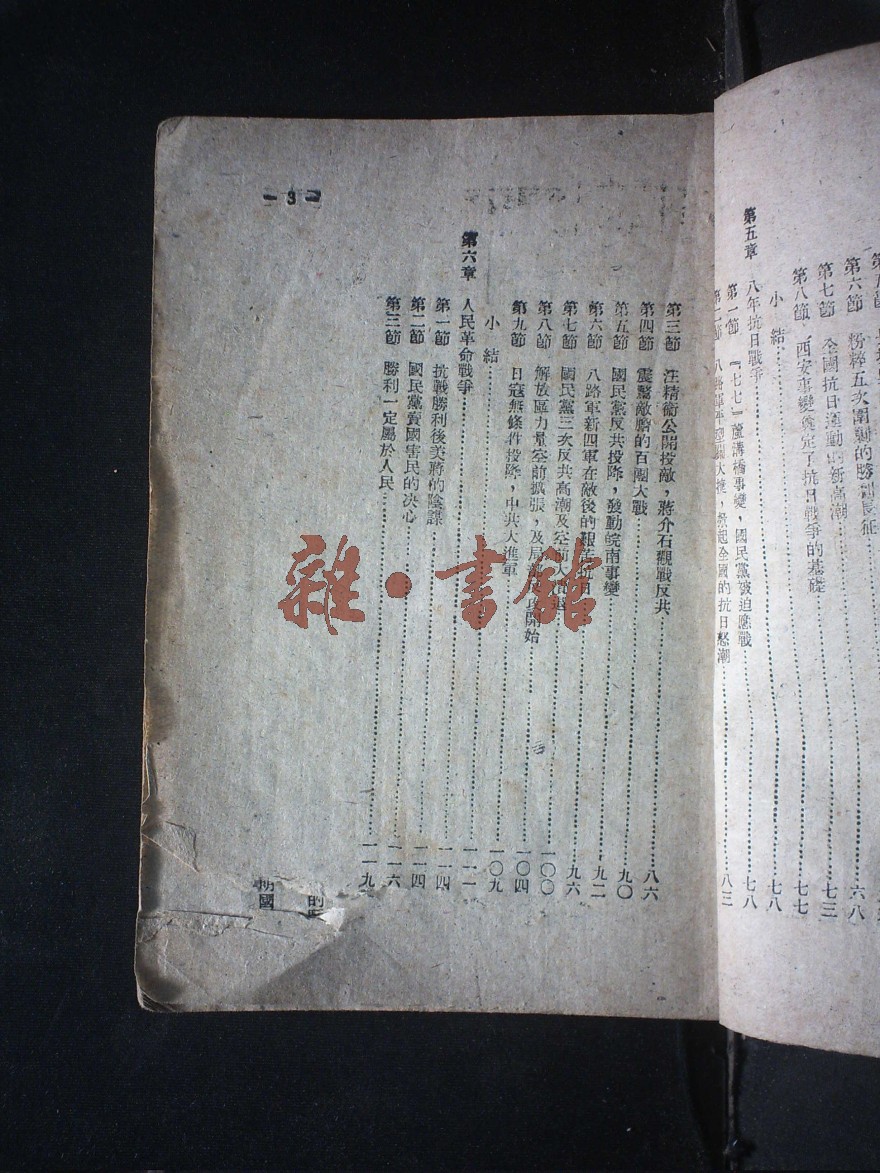 第六節 粉粹五次圍勦的勝利長征
第七節 全國抗日運動的新高潮……六八
第八節 西安事變奠定了抗日戰爭的基礎……七三
小結……七七
第五章 八年抗日戰爭……七八
第一節 『七七』蘆溝橋事變,國民黨被迫應戰……七八
第二節 八路軍平型關大捷,掀起全國的抗日怒潮……八三
第三節 汪精衛公開投敵,蔣介石觀戰反共……八六
第四節 震驚敵膽的百團大戰……九〇
第五節 國民黨反共投降,發動皖南事變……九二
第六節 八路軍新四軍在敵後的艱苦抗日……九六
第七節 國民黨三次反共高潮及空前大潰退……一〇〇
第八節 解放區力量空前擴張,及局部反攻開始……一〇四
第九節 日寇無條件投降,中共大進軍……一〇九
小結……一一一
第六章 人民革命戰爭……一一四
第一節 抗戰勝利後美蔣的陰謀……一一四
第二節 國民黨賣國害民的決心……一一六
第三節 勝利一定屬於人民……一一九
— 3 —
的
期國
雜·書館